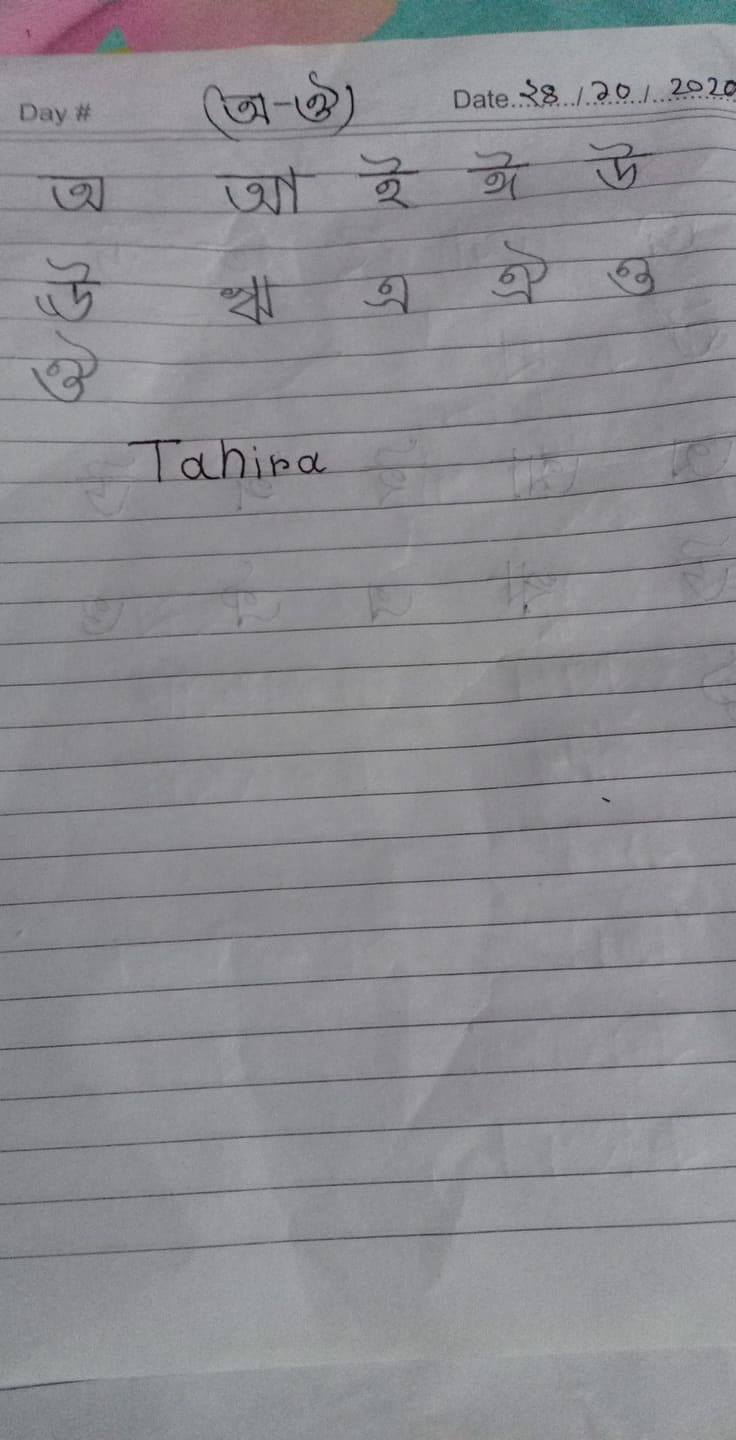 Day # (অ-ঔ) Date..২৪../.১০../..২০২০
অ আ ই ঈ উ
ঊ ঋ এ ঐ ও
ঔ
Tahira